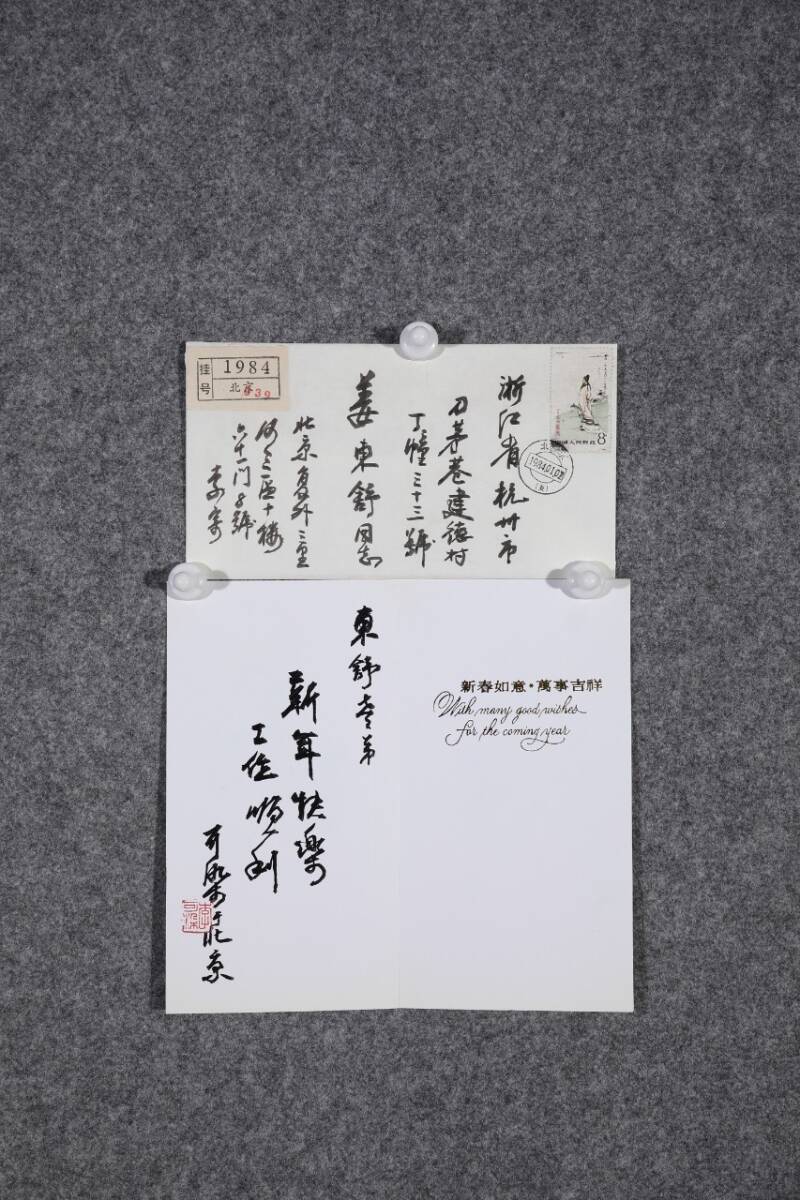 挂号
1984
北京
039
浙江省杭州市
刀茅巷建德村
丁幢三十三號
姜東舒同志
北京復外三里
河三區十楼
六十一门8號
李寄
中国人民邮政
8
北京
1984.01.02
新春如意·萬事吉祥
With many good wishes
for the coming year
東舒老弟
新年快樂
工作順利
可染于北京